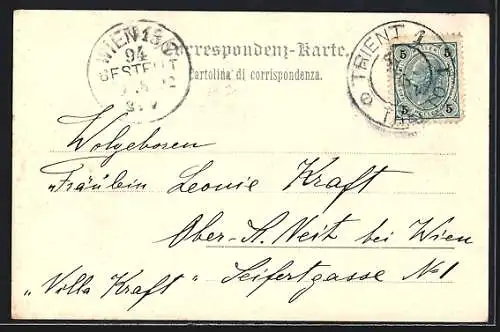 WIEN 13/7
94
BESTELLT
Correspondenz-Karte.
Cartolina di corrispondenza.
TRIENT 1
5 5
5 5
Wolgeboren
"Fräulein Leonie Kraft
Ober-St. Veit bei Wien
"Villa Kraft" Seifertgasse No 1